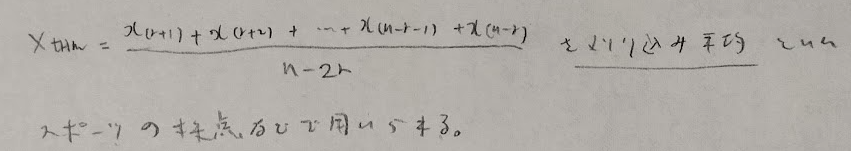 x trim = x(r+1) + x(r+2) + … + x(n-r-1) + x(n-r) / n-2r を刈り込み平均といい
スポーツの採点などで用いられる。